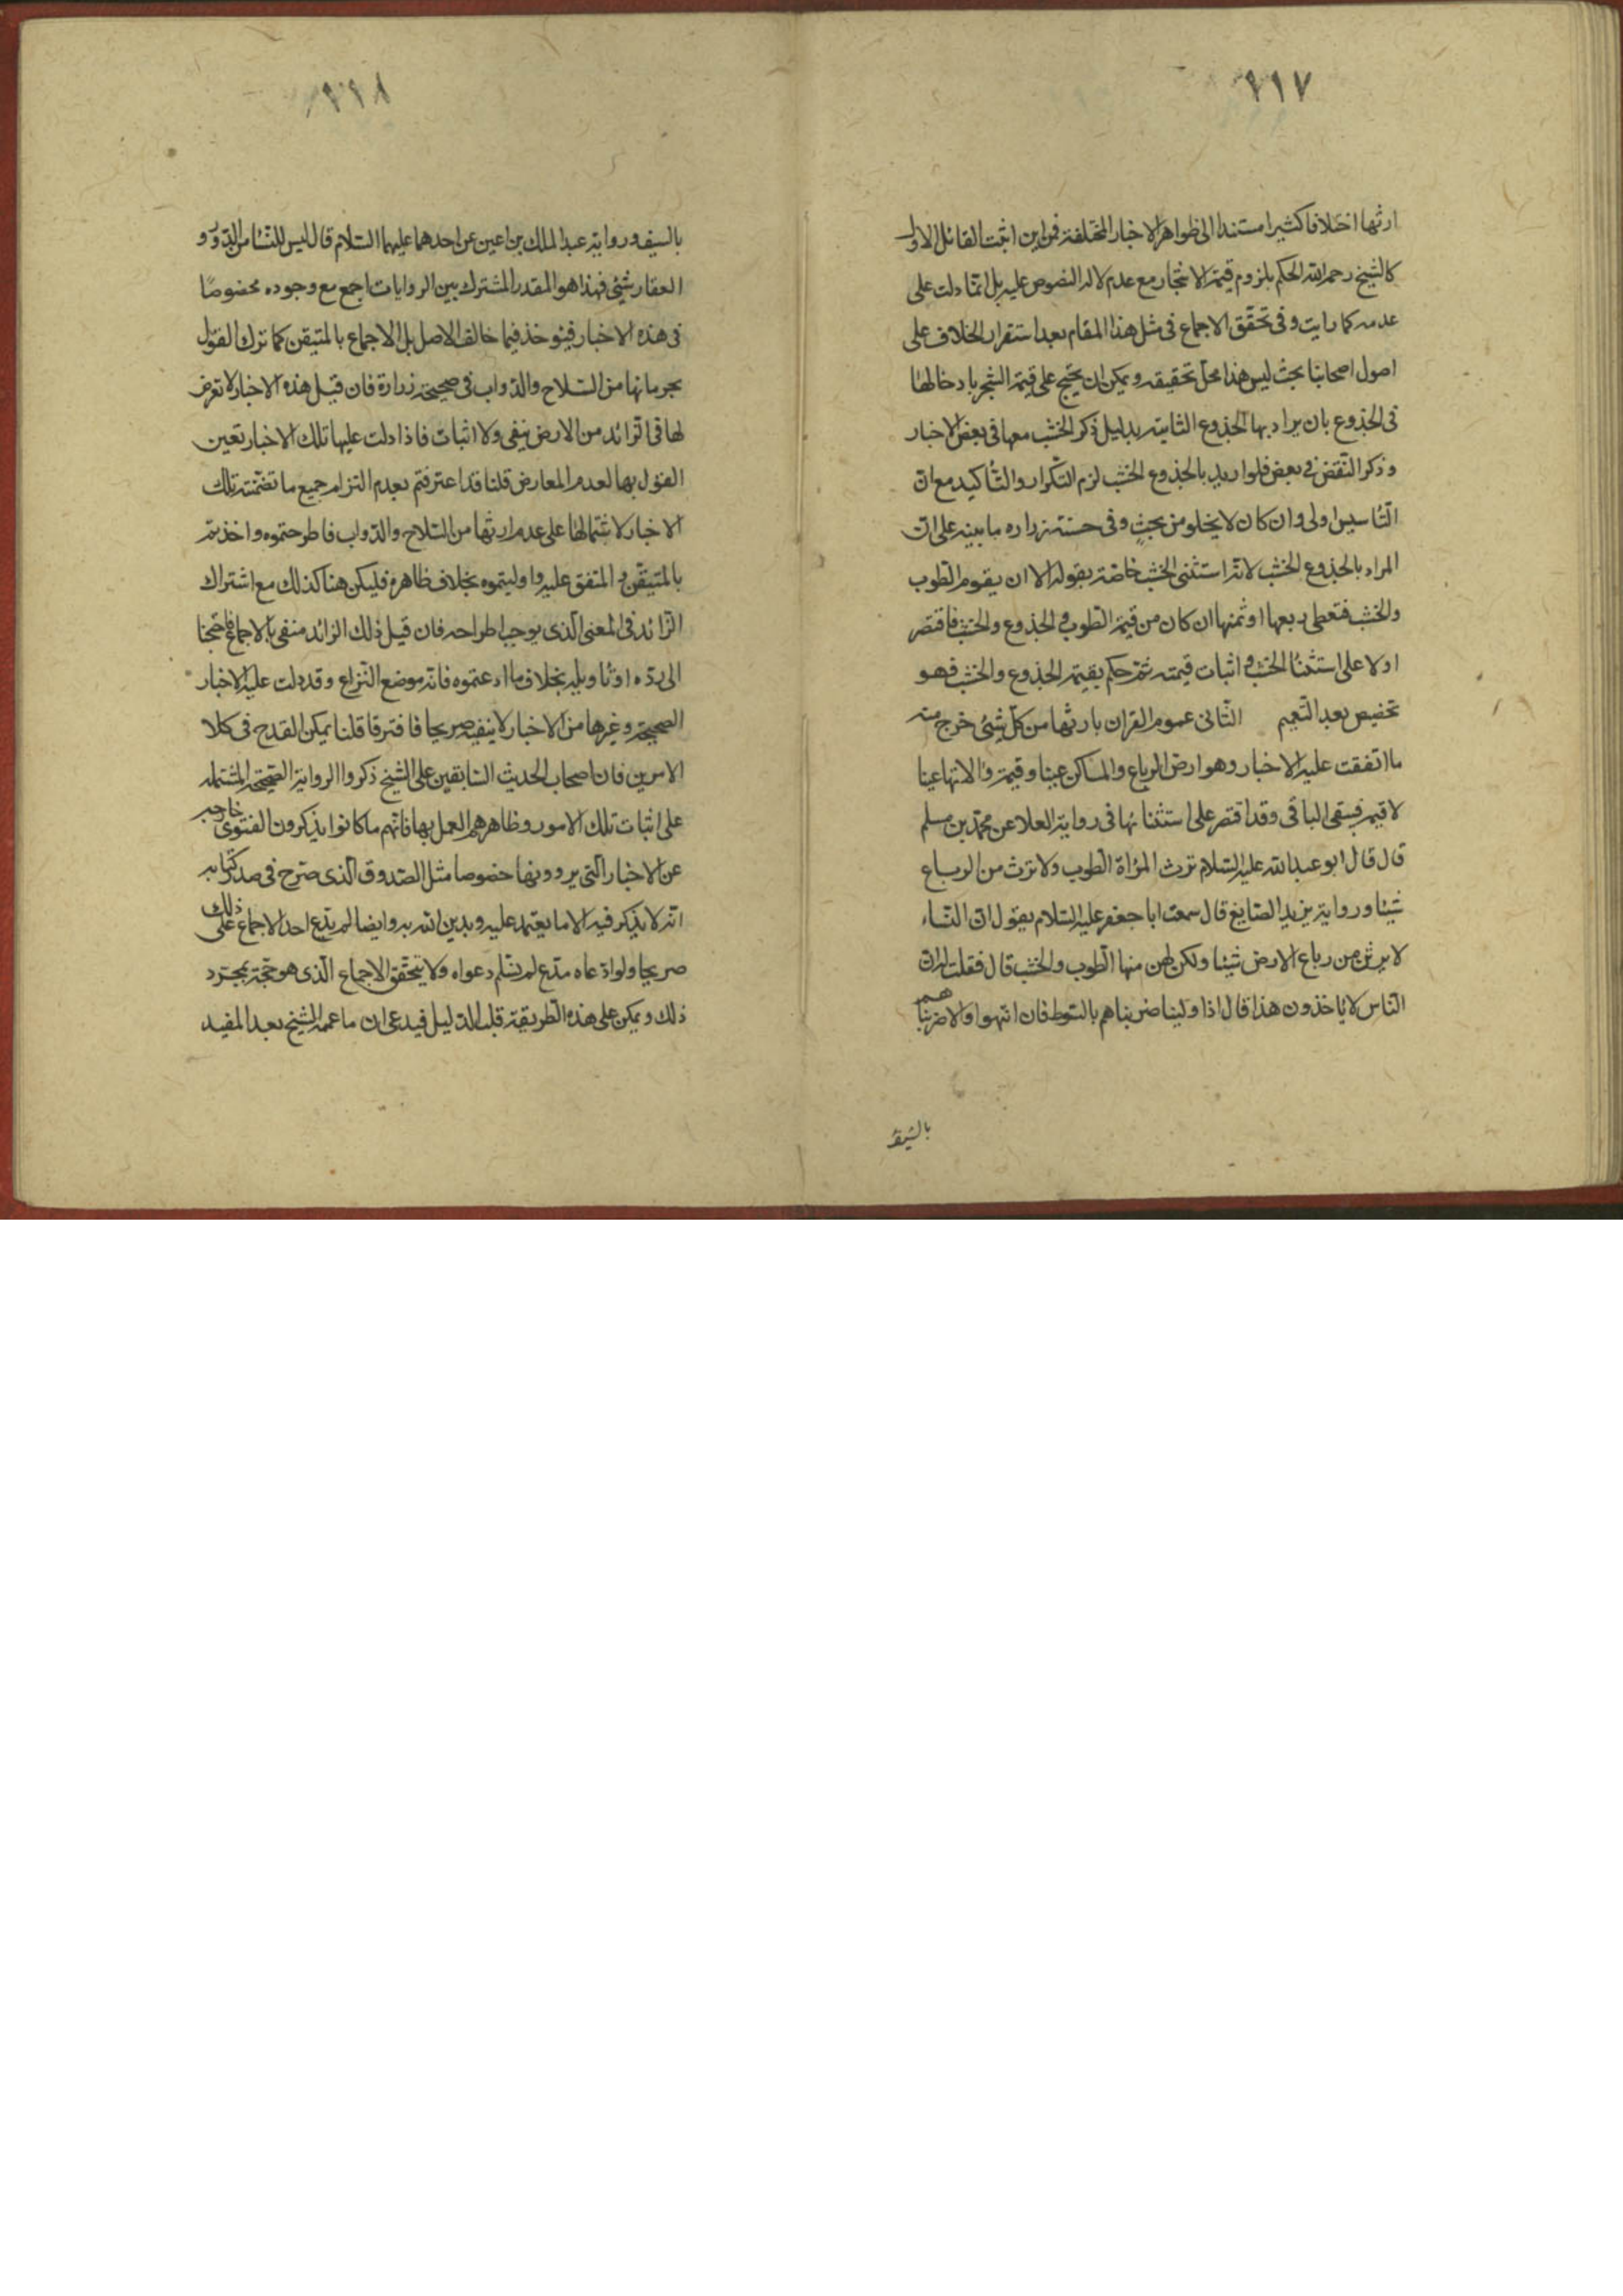 ٩١٧
ارثها اختلافا كثيرا مستندا الى ظواهر الاخبار المختلفة فمن اين اثبت القائل الاول
كالشيخ رحمه الله الحكم بلزوم قيمة الاشجار مع عدم دلالة النصوص عليه بل انما دلت على
عدمه كما رايت وفى تحقق الاجماع فى مثل هذا المقام بعد استقرار الخلاف على
اصول اصحابنا بحث ليس هذا محل تحقيقه ويمكن ان يحتج على قيمة الشجر بادخالها
فى الجذوع بان يراد بها الجذوع الثابتة بدليل ذكر الخشب معها فى بعض الاخبار
وذكر النقض فى بعض فلو اريد بالجذوع الخشب لزم التكرار والتأكيد مع ان
التأسيس اولى وان كان لا يخلو من بحث وفى حسنة زراره ما ينبه على ان
المراد بالجذوع الخشب لانه استثنى الخشب خاصة بقوله الا ان يقوم الطوب
والخشب فتعطى ربعها او ثمنها ان كان من قيمة الطوب و الجذوع والخشب فاقتصر
اولا على استثناء الخشب و اثبات قيمته ثم حكم بقيمة الجذوع والخشب فهو
تخصيص بعد التعميم الثانى عموم القران بارثها من كل شئ خرج منه
ما اتفقت عليه الاخبار وهو ارض الرباع والمساكن عينا وقيمة والاتها عينا
لا قيمة فيبقى الباقى وقد اقتصر على استثنائها فى رواية العلا عن محمد بن مسلم
قال قال ابو عبد الله عليه السلام ترث المرأة الطوب ولا ترث من الرباع
شيئا ورواية يزيد الصايغ قال سمعت ابا جعفر عليه السلام يقول ان النساء
لا يرثن من رباع الارض شيئا ولكن لهن منها الطوب والخشب قال فقلت له ان
الناس لا ياخذون هذا قال اذا ولينا ضربناهم بالسوط فان انتهوا والا ضربناهم
بالسيف
٩١٨
بالسيف ورواية عبد الملك بن اعين عن احدهما عليهما السلام قال ليس للنساء من الدور و
العقار شئ فهذا هو المقدر المشترك بين الروايات اجمع مع وجوده مخصوصا
فى هذه الاخبار فيؤخذ فيما خالف الاصل بل الاجماع بالمتيقن كما ترك القول
بحرمانها من السلاح والدواب فى صحيحة زرارة فان قيل هذه الاخبار لا تعرض
لها فى الزائد من الارض بنفى ولا اثبات فاذا دلت عليها تلك الاخبار تعين
القول بها لعدم المعارض قلنا قد اعترفتم بعدم التزام جميع ما تضمنته تلك
الاخبار لاشتمالها على عدم ارثها من السلاح والدواب فاطرحتموه واخذتم
بالمتيقن و المتفق عليه واوليتموه بخلاف ظاهره فليكن هنا كذلك مع اشتراك
الزائد فى المعنى الذى يوجب اطراحه فان قيل ذلك الزائد منفى بالاجماع فاحتجنا
الى رده او تاويله بخلاف ما ادعيتموه فانه موضع النزاع وقد دلت عليه الاخبار
الصحيحة وغيرها من الاخبار لا ينفيه صريحا فافترقا قلنا يمكن القدح فى كلا
الامرين فان اصحاب الحديث السابقين على الشيخ ذكروا الرواية الصحيحة المشتملة
على اثبات تلك الامور وظاهرهم العمل بها فانهم ما كانوا يذكرون الفتوى خارجه
عن الاخبار التى يروونها خصوصا مثل الصدوق الذى صرح فى صدر كتابه
انه لا يذكر فيه الا ما يعتمد عليه ويدين الله به وايضا لم يدع احد الاجماع على ذلك
صريحا ولو ادعاه مدع لم نسلم دعواه ولا يتحقق الاجماع الذى هو حجة بمجرد
ذلك ويمكن على هذه الطريقة قلب الدليل فيدعى ان ما عمه الشيخ بعد المفيد